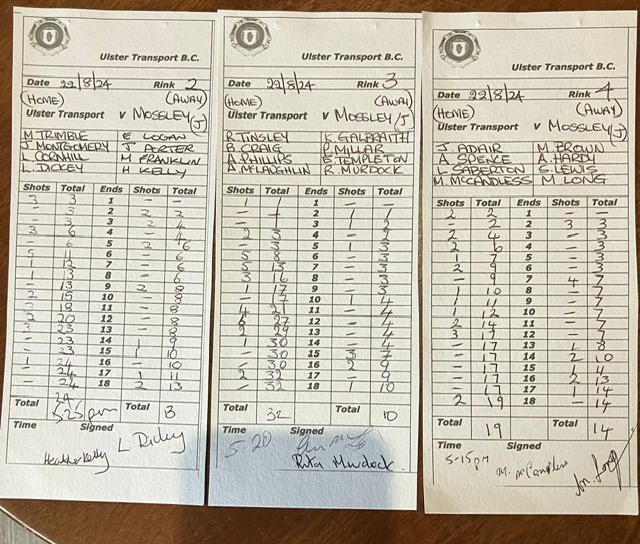 Ulster Transport B.C.
Date 22/8/24 Rink 2
(HOME) (AWAY)
Ulster Transport V MOSSLEY (J)
M TRIMBLE E LOGAN
J. MONTGOMERY J PORTER
L. CORNHILL M FRANKLIN
L. DICKEY H KELLY
Shots Total Ends Shots Total
3 3 1 — —
— 3 2 2 2
— 3 3 2 4
3 6 4 — 4
— 6 5 2 6
5 11 6 — 6
1 12 7 — 6
1 13 8 — 6
— 13 9 2 8
2 15 10 — 8
3 18 11 — 8
2 20 12 — 8
3 23 13 — 8
— 23 14 1 9
— 23 15 1 10
1 24 16 — 10
— 24 17 1 11
— 24 18 2 13
Total 24 Total 13
5.25 pm
Time Signed
L Dickey
Heather Kelly
Ulster Transport B.C.
Date 22/8/24 Rink 3
(HOME) (AWAY)
Ulster Transport V MOSSLEY (J)
R TINSLEY K GALBRAITH
B. CRAIG P. MILLAR
A. PHILLIPS E TEMPLETON
A. McLAUGHLIN R. MURDOCK
Shots Total Ends Shots Total
1 1 1 — —
— 1 2 1 1
— 1 3 1 2
2 3 4 — 2
— 3 5 1 3
5 8 6 — 3
5 13 7 — 3
3 16 8 — 3
1 17 9 — 3
— 17 10 1 4
4 21 11 — 4
6 27 12 — 4
2 29 13 — 4
1 30 14 — 4
— 30 15 3 7
— 30 16 2 9
2 32 17 — 9
— 32 18 1 10
Total 32 Total 10
Time Signed
5-20
Rita Murdock
Ulster Transport B.C.
Date 22/8/24 Rink 4
(HOME) (AWAY)
Ulster Transport V MOSSLEY (J)
J. ADAIR M. BROWN
A SPENCE A. HARDY
L SABERTON S. LEWIS
M McCANDLESS M LONG
Shots Total Ends Shots Total
2 2 1 — —
— 2 2 3 3
2 4 3 — 3
2 6 4 — 3
1 7 5 — 3
2 9 6 — 3
— 9 7 4 7
1 10 8 — 7
1 11 9 — 7
1 12 10 — 7
2 14 11 — 7
3 17 12 — 7
— 17 13 1 8
— 17 14 2 10
— 17 15 1 11
— 17 16 2 13
— 17 17 1 14
2 19 18 — 14
Total 19 Total 14
Time Signed
5-15pm M. McCandless
M. Long